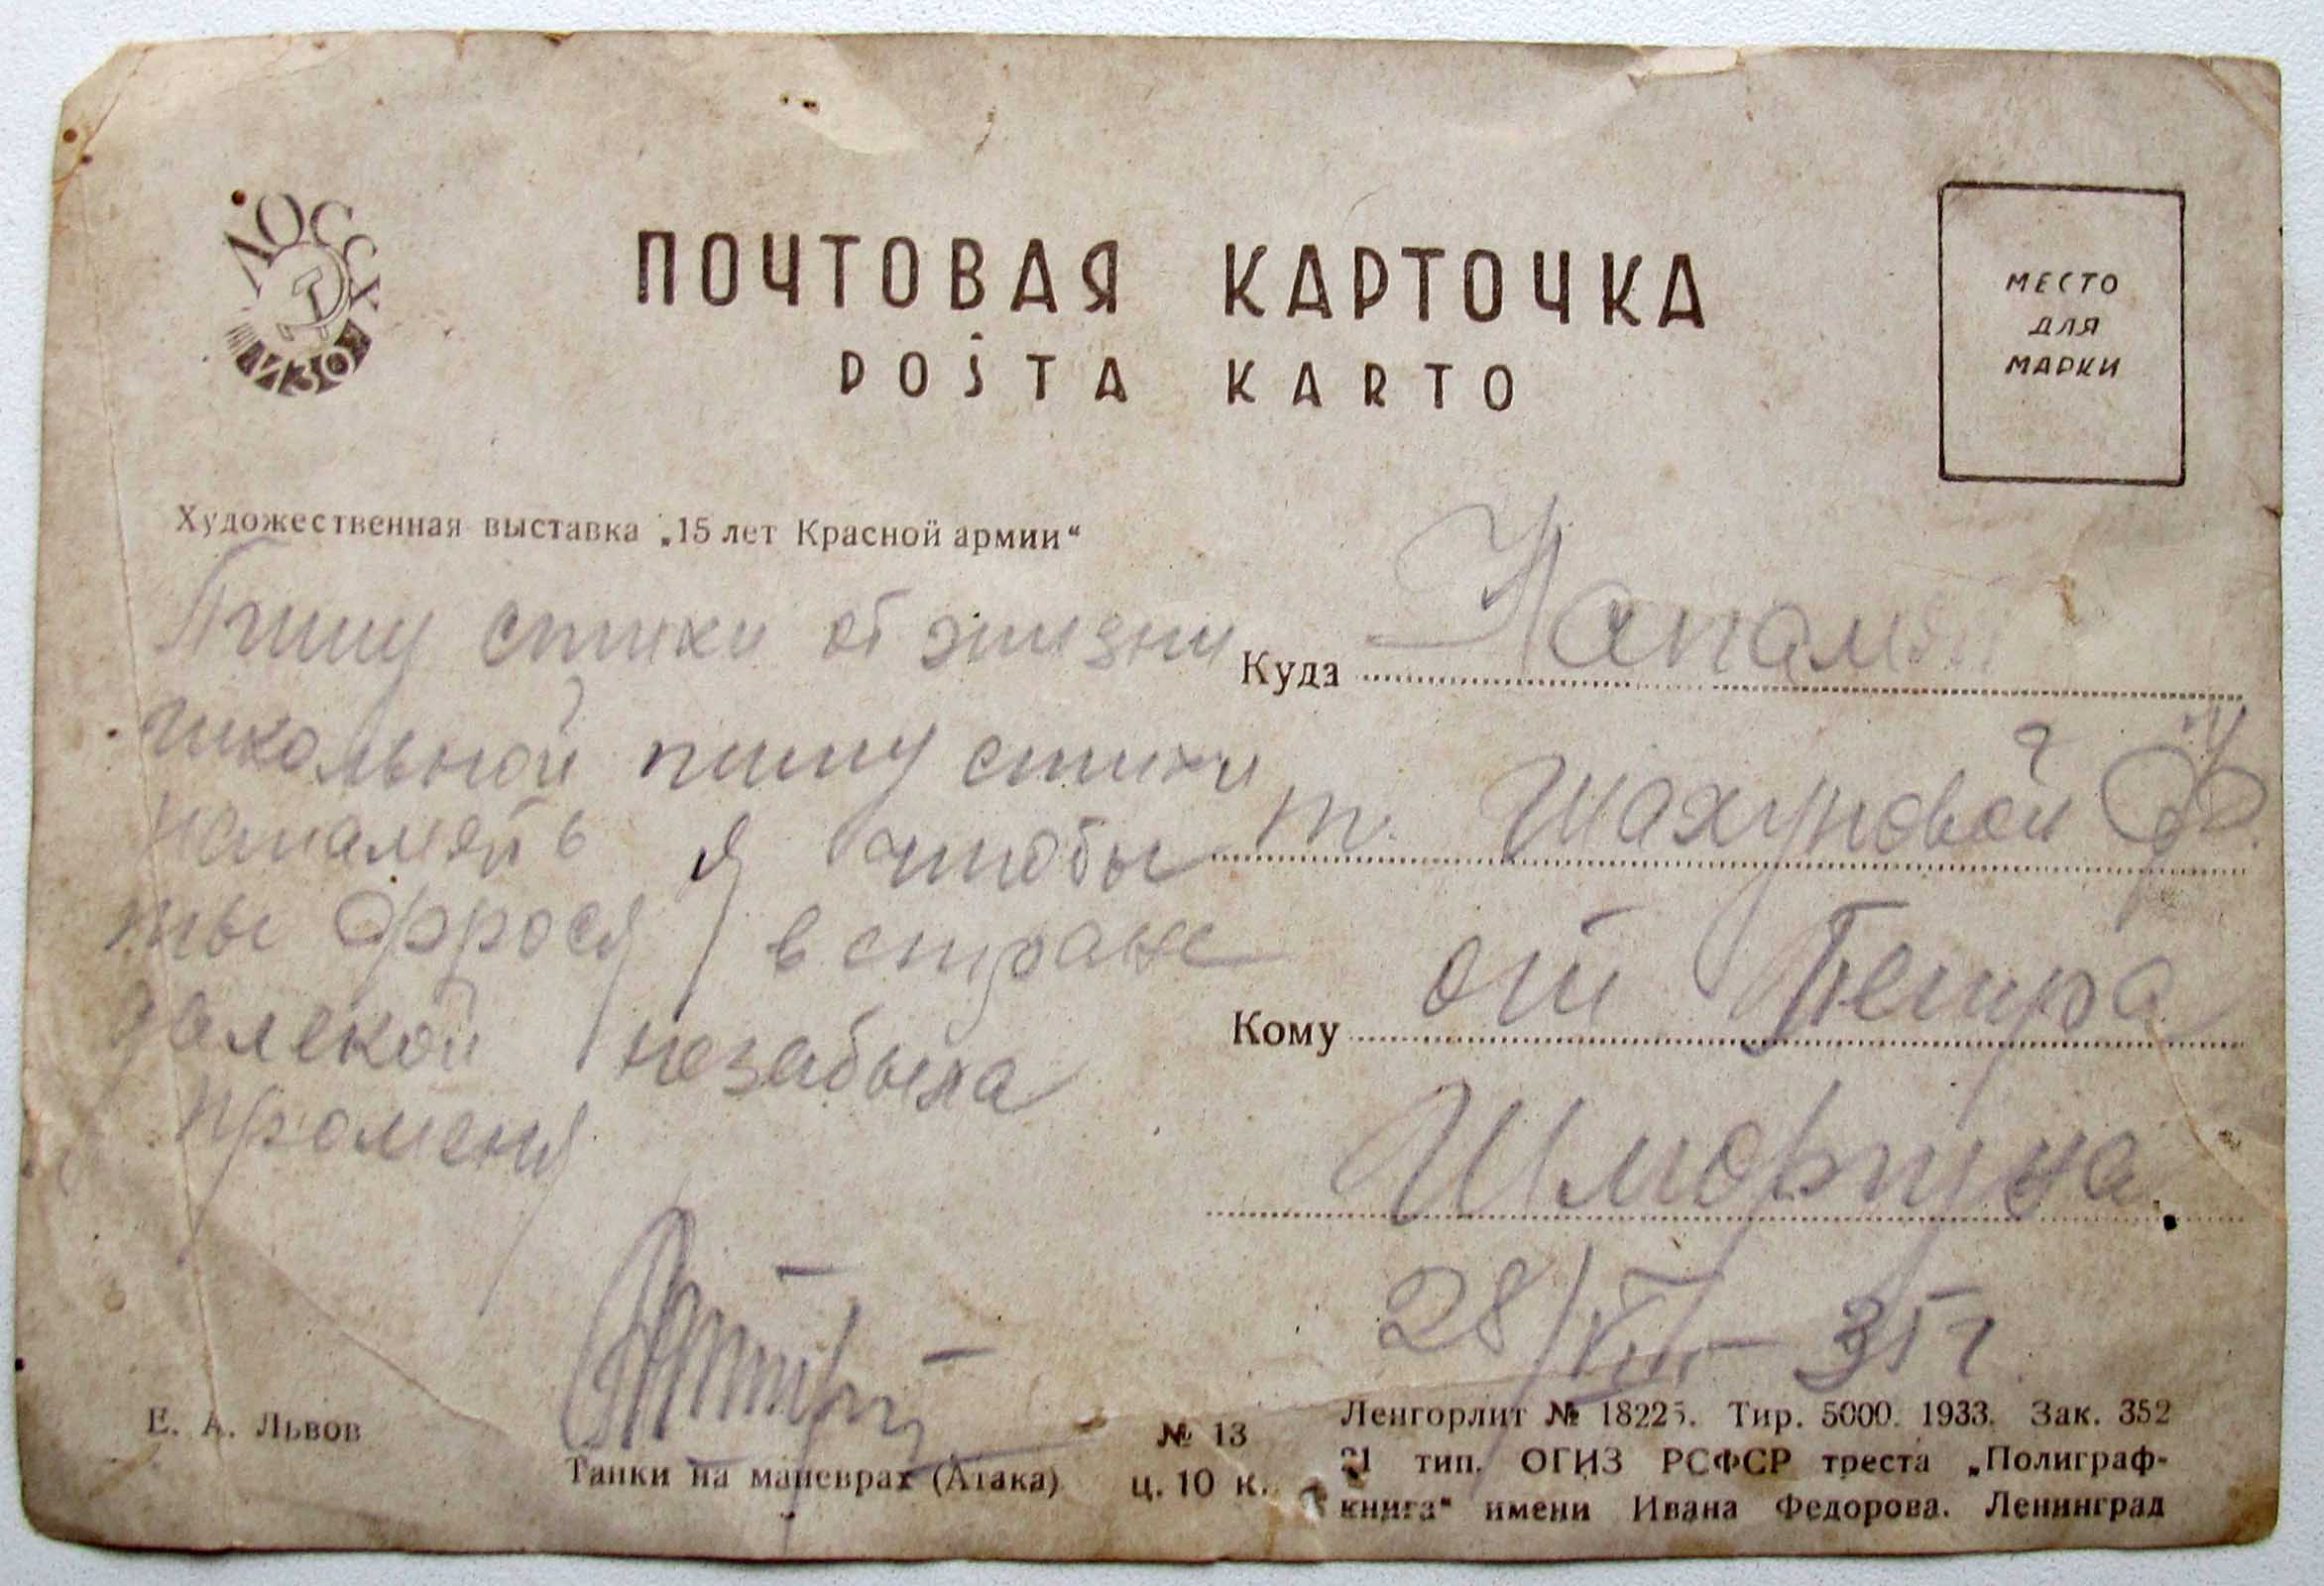 ЛОССХ
ИЗО
ПОЧТОВАЯ КАРТОЧКА
POŜTA KARTO
МЕСТО
ДЛЯ
МАРКИ
Художественная выставка „15 лет Красной армии“
Пишу стихи от жизни
школьной пишу стихи
напамять я чтобы
ты Фрося в стране
далекой незабыла
променя
Куда Напам
т. Шахуновой Ф.
Кому от Петра
Шморгуна.
28/VIII 35 г
Е. А. Львов
Танки на маневрах (Атака)
№ 13
ц. 10 к.
Ленгорлит № 18225. Тир. 5000. 1933. Зак. 352
21 тип. ОГИЗ РСФСР треста „Полиграф-
книга“ имени Ивана Федорова. Ленинград